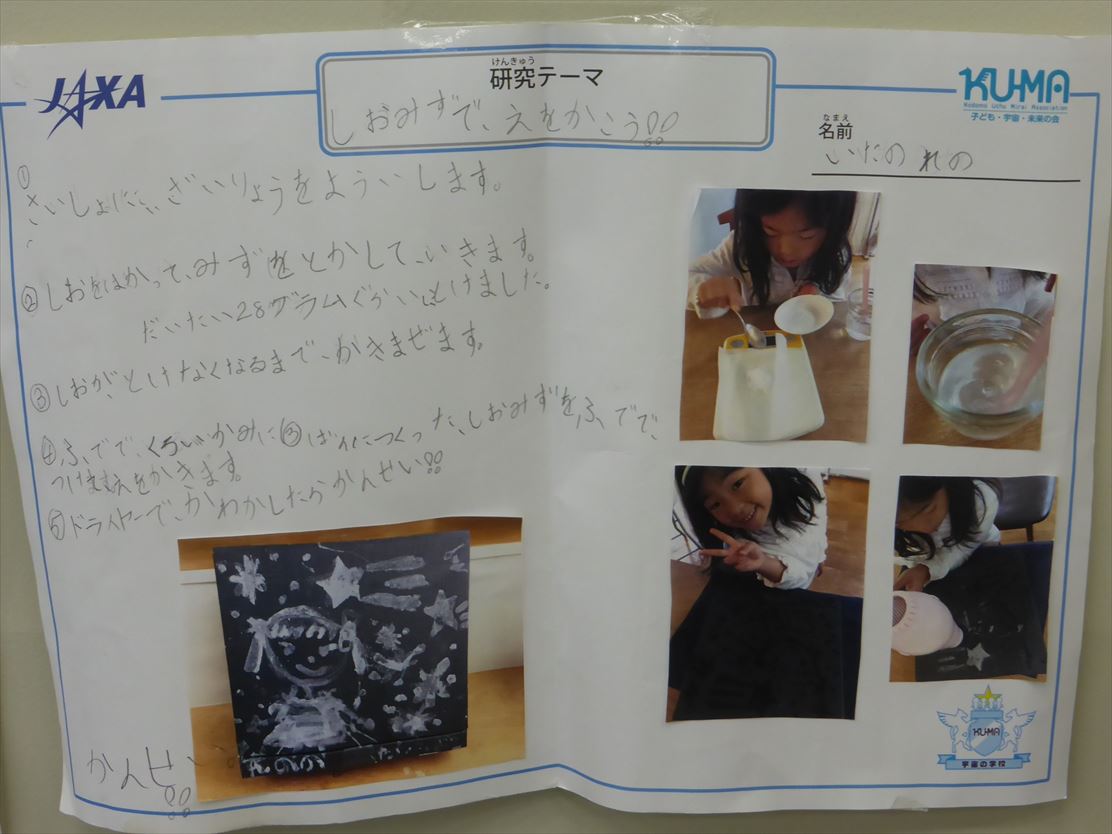 JAXA
けんきゅう
研究テーマ
しおみずで、えをかこう!!
KU-MA
Kodomo Uchu Mirai Association
子ども・宇宙・未来の会
なまえ
名前
いだの れの
①
さいしょに、ざいりょうをよういします。
②しおをはかって、みずをとかして、いきます。
だいたい28グラムぐらいとけました。
③しおが、とけなくなるまで、かきまぜます。
④ふでで、くろいかみに③ばんにつくった、しおみずを、ふでで、
つけてえをかきます。
⑤ドライヤーで、かわかしたらかんせい!!
かんせい
!!
KU-MA
宇宙の学校